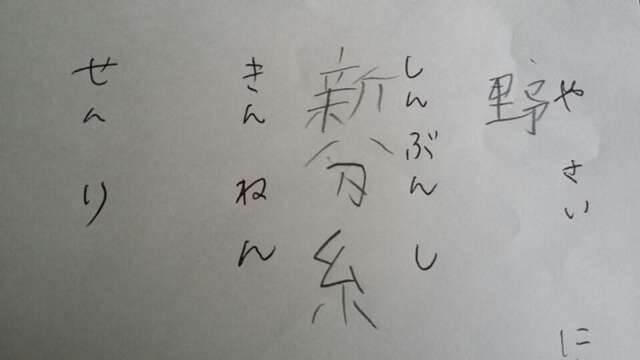 やさい
に
野
しんぶんし
新分糸
きんねん
せんり